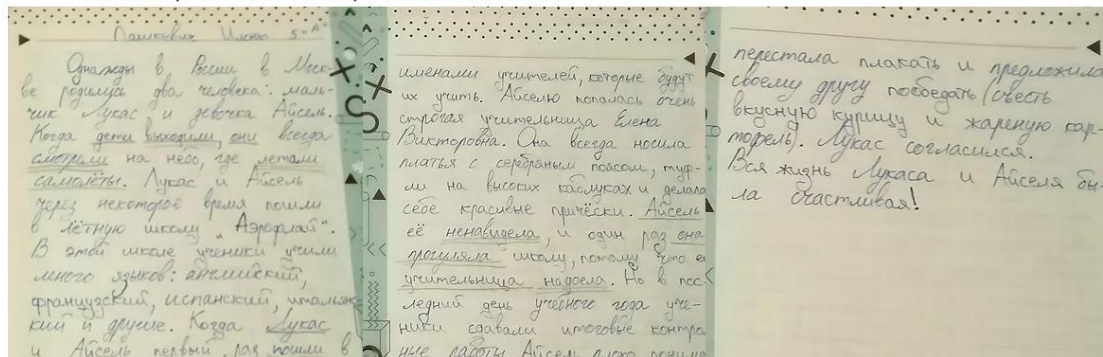 Пашкович Илоны 5-А
Однажды в России в Моск-
ве родились два человека: маль-
чик Лукас и девочка Айсель.
Когда дети выходили, они всегда
смотрели на небо, где летали
самолёты. Лукас и Айсель
через некоторое время пошли
в лётную школу "Аэрофлай".
В этой школе ученики учили
много языков: английский,
французский, испанский, итальянс-
кий и другие. Когда Лукас
и Айсель первый раз пошли в
именами учителей, которые будут
их учить. Айселю попалась очень
строгая учительница Елена
Викторовна. Она всегда носила
платья с серебряным поясом, туф-
ли на высоких каблуках и делала
себе красивые причёски. Айсель
её ненавидела, и один раз она
прогуляла школу, потому что ей
учительница надоела. Но в пос-
ледний день учебного года уче-
ники сдавали итоговые контроль
ные работы Айсель плохо понима
перестала плакать и предложила
своему другу пообедать (съесть
вкусную курицу и жареную кар-
тофель). Лукас согласился.
Вся жизнь Лукаса и Айселя бы-
ла счастливая!